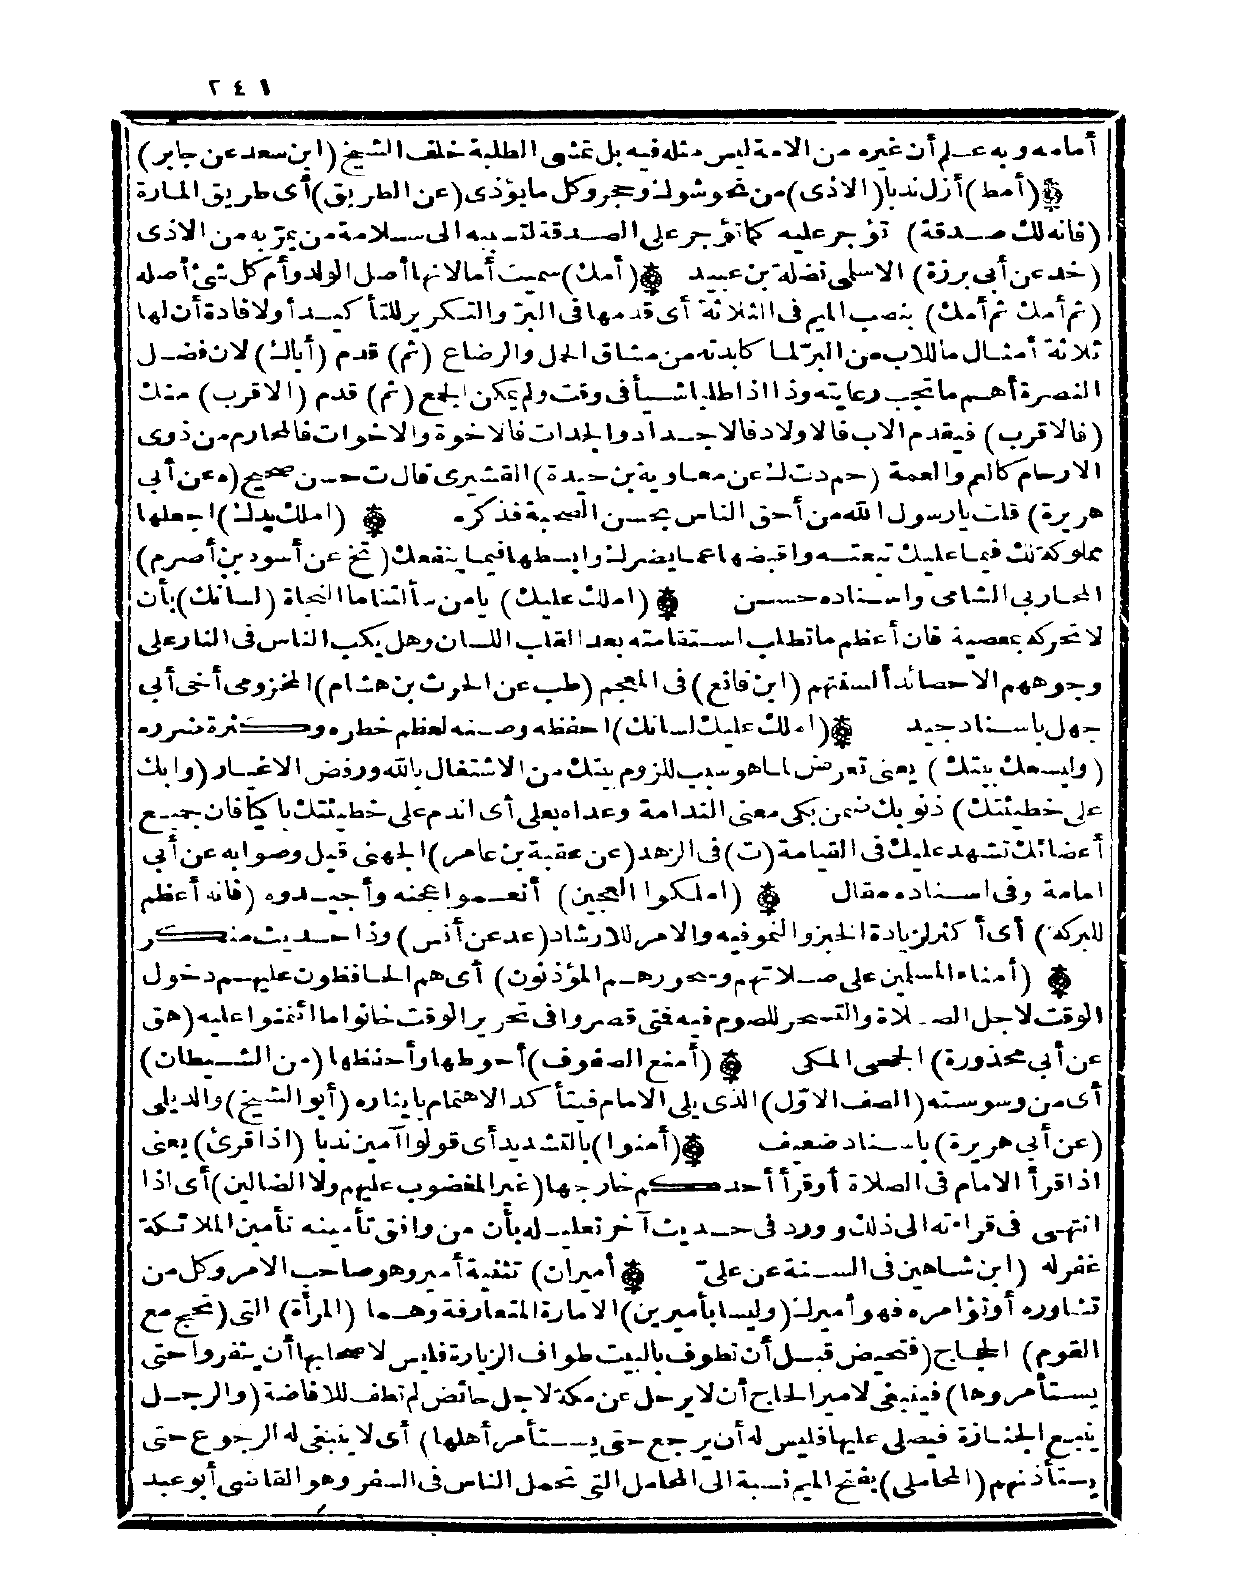 ٢٤١
أمامه وبه علم أن غيره من الامة ليس مثله فيه بل تمشى الطلبة خلف الشيخ (ابن سعد عن جابر)
(أمط) أزل ندبا (الاذى) من نحو شوك وحجر وكل ما يؤذى (عن الطريق) أى طريق المارة
(فانه لك صدقة) تؤجر عليه كما تؤجر على الصدقة لتسببه الى سلامة من يمرّ به من الاذى
(خد عن أبى برزة) الاسلمى نضلة بن عبيد (أمك) سميت أما لانها أصل الولد وأم كل شئ أصله
(ثم أمك ثم أمك) بنصب الميم فى الثلاثة أى قدمها فى البرّ والتكرير للتأكيد أو لافادة أن لها
ثلاثة أمثال ما للاب من البرّ لما كابدته من مشاق الحمل والرضاع (ثم) قدم (أباك) لان فضل
النصرة أهم ما تجب رعايته وذا اذا طلبا شيأ فى وقت ولم يمكن الجمع (ثم) قدم (الاقرب) منك
(فالاقرب) فيقدم الاب فالاولاد فالاجداد والجدات فالاخوة والاخوات فالمحارم من ذوى
الارحام كالعم والعمة (حم د ت ك عن معاوية بن حيدة) القشيرى قال ت حسن صحيح (ه عن أبى
هريرة) قلت يا رسول الله من أحق الناس بحسن الصحبة فذكره (املك يدك) اجعلها
مملوكة لك فيما عليك تبعته واقبضها عما يضرك وابسطها فيما ينفعك (تخ عن أسود بن أصرم)
المحاربى الشامى واسناده حسن (املك عليك) يا من سألتنا ما النجاة (لسانك) بأن
لا تحركه بمعصية فان أعظم ما تطلب استقامته بعد القلب اللسان وهل يكب الناس فى النار على
وجوههم الا حصائد ألسنتهم (ابن قانع) فى المعجم (طب عن الحرث بن هشام) المخزومى أخى أبى
جهل باسناد جيد (املك عليك لسانك) احفظه وصنه لعظم خطره وكثرة ضرره
(وليسعك بيتك) يعنى تعرض لما هو سبب للزوم بيتك من الاشتغال بالله ورفض الاغيار (وابك
على خطيئتك) ذنوبك ضمن بكى معنى الندامة وعداه بعلى أى اندم على خطيئتك باكيا فان جميع
أعضائك تشهد عليك فى القيامة (ت) فى الزهد (عن عقبة بن عامر) الجهنى قيل وصوابه عن أبى
امامة وفى اسناده مقال (املكوا العجين) أنعموا عجنه وأجيدوه (فانه أعظم
للبركة) أى أكثر لزيادة الخبز والنمو فيه والامر للارشاد (عد عن أنس) وذا حديث منكر
(أمناء المسلمين على صلاتهم وسحورهم المؤذنون) أى هم الحافظون عليهم دخول
الوقت لاجل الصلاة والتسحر للصوم فيه فتى قصروا فى تحرير الوقت خانوا ما ائتمنوا عليه (هق
عن أبى محذورة) الجمحى المكى (أمنع الصفوف) أحوطها وأحفظها (من الشيطان)
أى من وسوسته (الصف الاوّل) الذى يلى الامام فيتأكد الاهتمام بايثاره (أبو الشيخ) والديلى
(عن أبى هريرة) باسناد ضعيف (أمنوا) بالتشديد أى قولوا آمين ندبا (اذا قرئ) يعنى
اذا قرأ الامام فى الصلاة أو قرأ أحدكم خارجها (غير المغضوب عليهم ولا الضالين) أى اذا
انتهى فى قراءته الى ذلك وورد فى حديث آخر تعليله بأن من وافق تأمينه تأمين الملائكة
غفر له (ابن شاهين فى السنة عن علىّ) (أميران) تثنية أمير وهو صاحب الامر وكل من
تشاوره أو تؤامره فهو أميرك (وليسا بأميرين) الامارة المتعارفة وهما (المرأة) التى (تحج مع
القوم) الحجاج (فتحيض قبل أن تطوف بالبيت طواف الزيارة فليس لاصحابها أن ينفروا حتى
يستأمروها) فينبغى لامير الحاج أن لا يرحل عن مكة لاجل حائض لم تطف للافاضة (والرجل
يتبع الجنازة فيصلى عليها فليس له أن يرجع حتى يستأمر أهلها) أى لا ينبغى له الرجوع حتى
يستأذنهم (المحاملى) بفتح الميم نسبة الى المحامل التى تحمل الناس فى السفر وهو القاضى أبو عبد